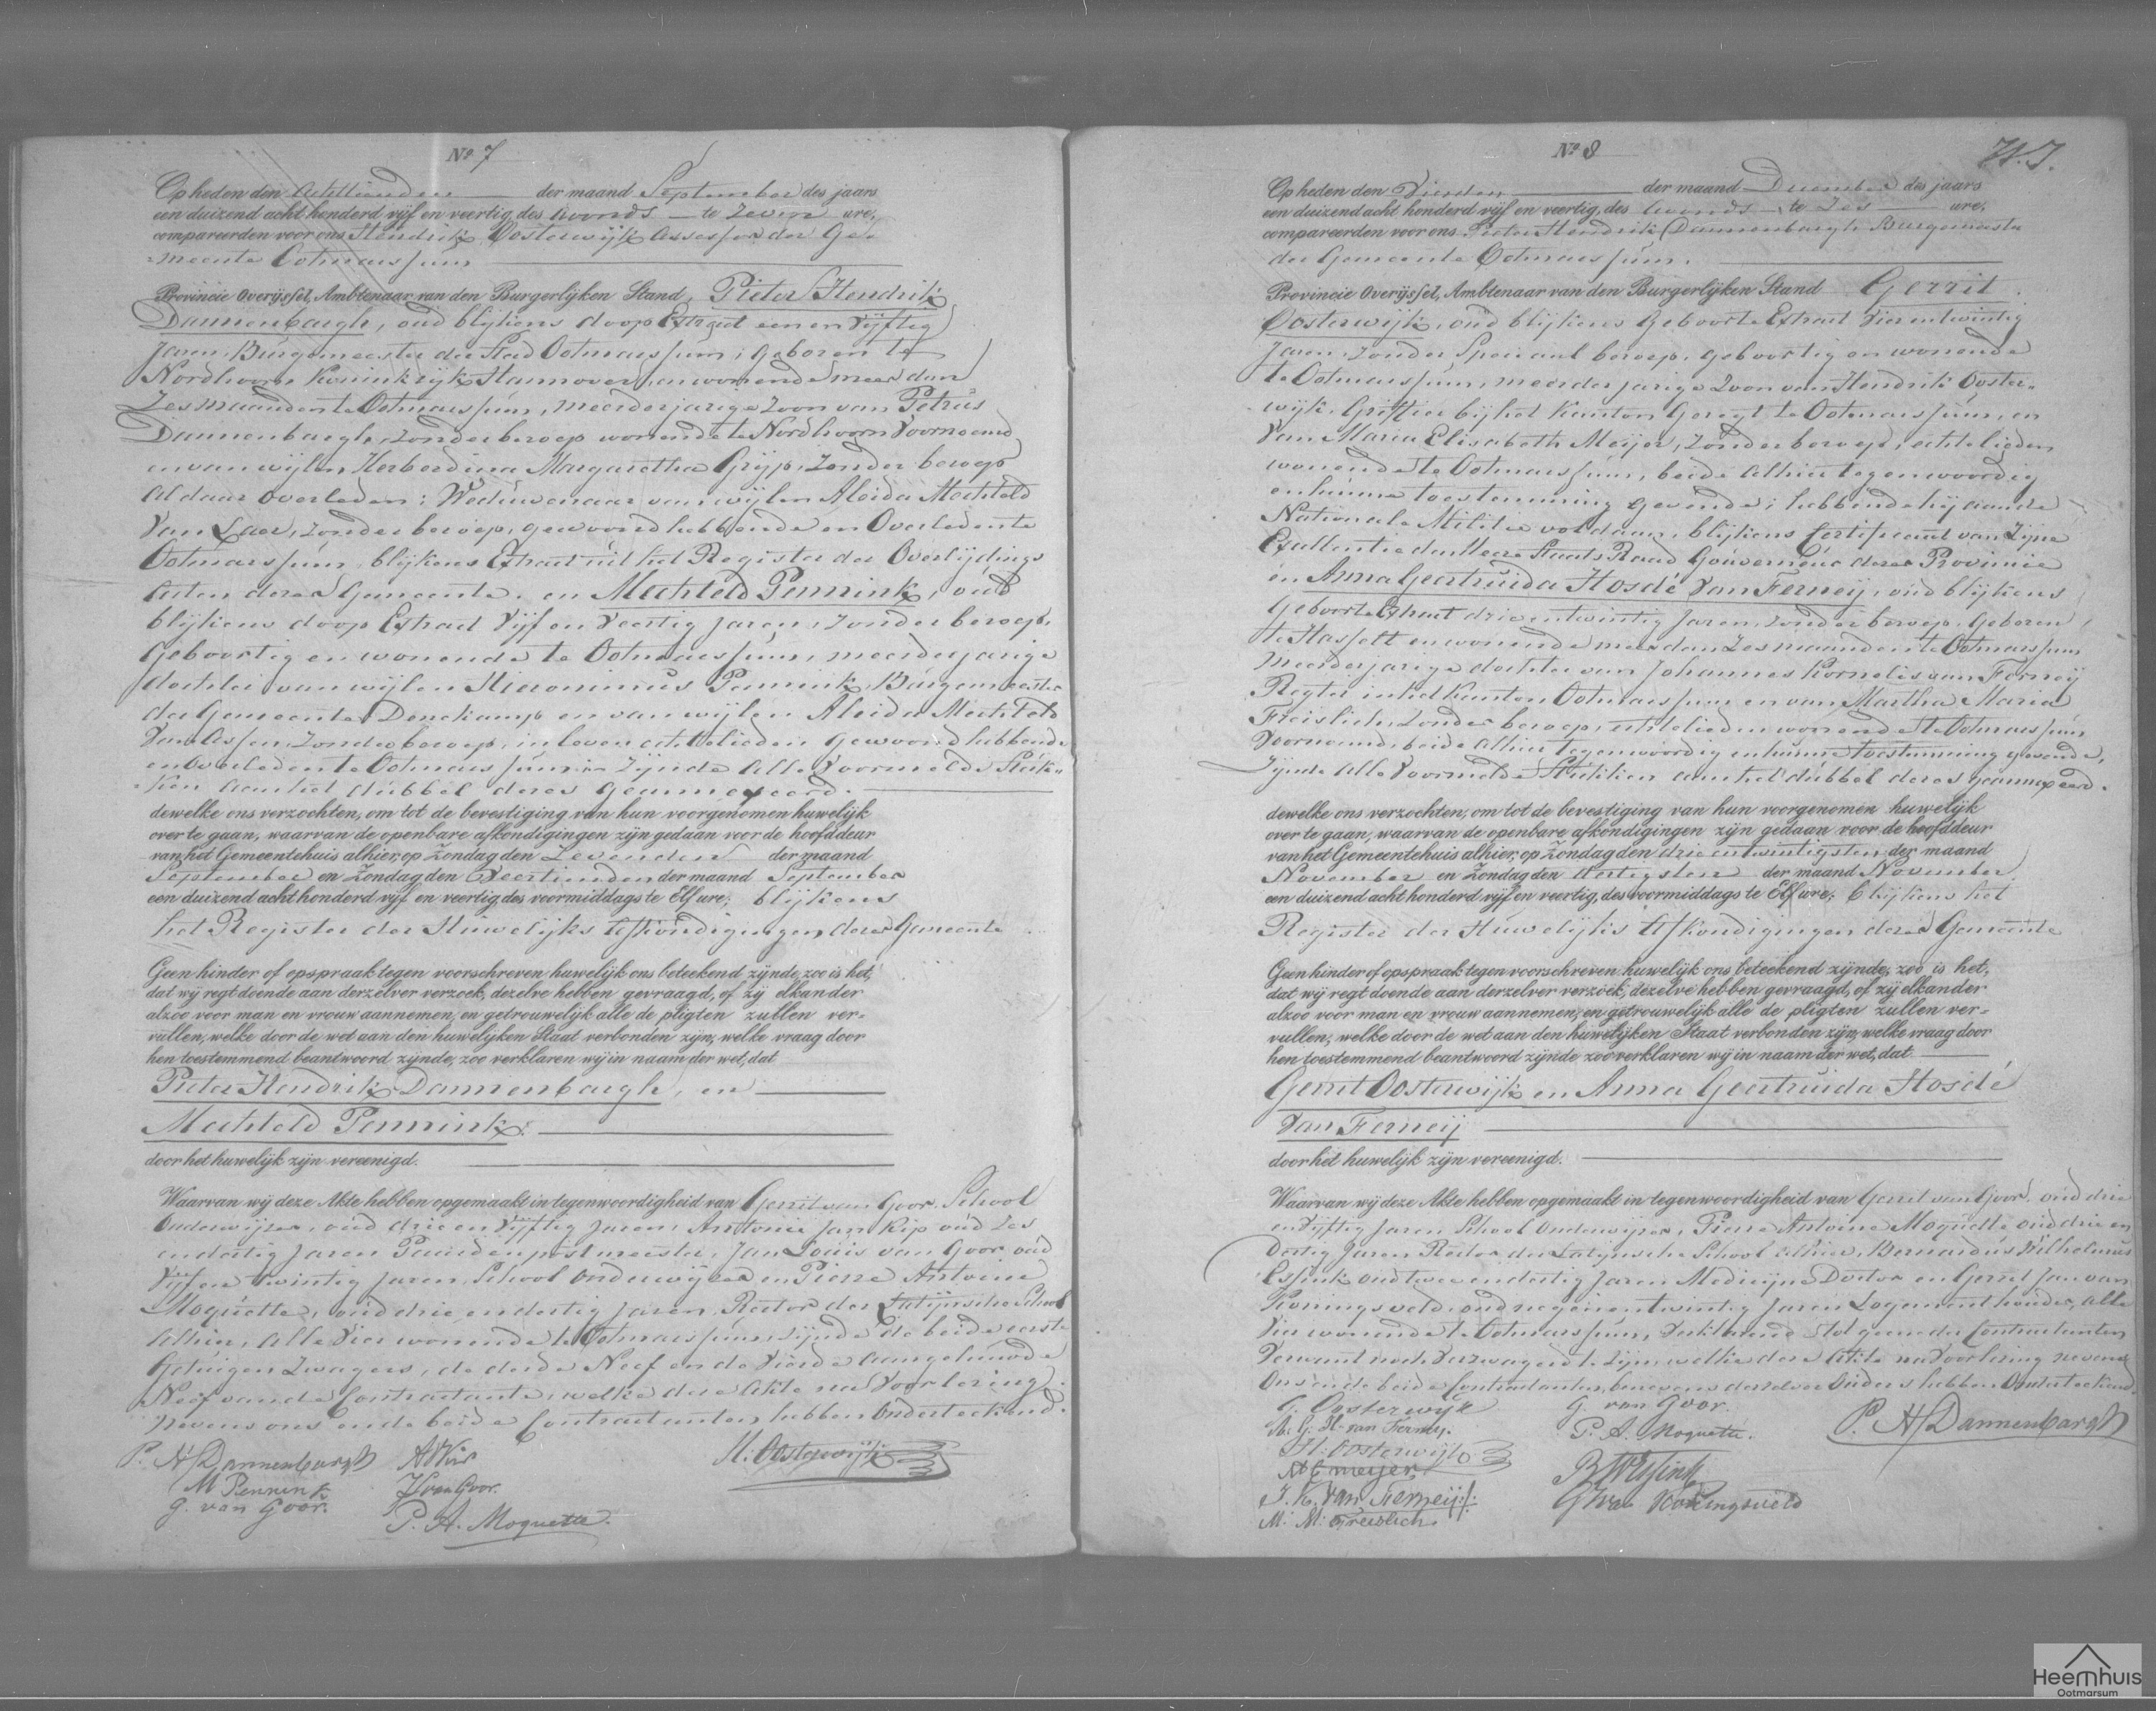 No 7
Op heden den Achttienden der maand September des jaars
een duizend acht honderd vijf en veertig, des avonds te Zeven ure,
compareerden voor ons Hendrik Oosterwijk Assessor der Ge-
meente Ootmarssum
Provincie Overijssel, Ambtenaar van den Burgerlijken Stand, Pieter Hendrik
Dannenbargh, oud blijkens doop Extract een en Vijftig
Jaren, Burgemeester der Stad Ootmarssum, geboren te
Nordhoorn Koninkrijk Hannover, en wonende meer dan
Zes maanden te Ootmarssum, meerderjarige Zoon van Petrus
Dannenbargh, zonder beroep wonende te Nordhoorn Voornoemd
en van wijlen Herberdina Margaretha Grijp, zonder beroep
Aldaar overleden; Weduwenaar van wijlen Aleida Mechteld
Van Laer, zonder beroep, gewoond hebbende en Overleden te
Ootmarssum, blijkens Extract uit het Register der Overlijdings
Acten dezer Gemeente, en Mechteld Pennink, oud
blijkens doop Extract Vijf en Veertig Jaren, zonder beroep,
Geboortig en wonende te Ootmarssum, meerderjarige
dochter van wijlen Hieronimus Pennink, Burgemeester
der Gemeente Denekamp en van wijlen Aleida Mechteld
Van Assen, zonder beroep, in leven echtelieden gewoond hebbende
en overleden te Ootmarssum; Zijnde Alle Voormelde Stuk-
ken aan het dubbel dezes geannexeerd.
dewelke ons verzochten, om tot de bevestiging van hun voorgenomen huwelijk
over te gaan, waarvan de openbare afkondigingen zijn gedaan voor de hoofddeur
van het Gemeentehuis alhier, op Zondag den Zevenden der maand
September en Zondag den Veertienden der maand September
een duizend acht honderd vijf en veertig, des voormiddags te Elf ure; blijkens
het Register der Huwelijks Afkondigingen dezer Gemeente
Geen hinder of opspraak tegen voorschreven huwelijk ons beteekend zijnde, zoo is het,
dat wij regt doende aan derzelver verzoek, dezelve hebben gevraagd, of zij elkander
alzoo voor man en vrouw aannemen, en getrouwelijk alle de pligten zullen ver-
vullen, welke door de wet aan den huwelijken Staat verbonden zijn, welke vraag door
hen toestemmend beantwoord zijnde, zoo verklaren wij in naam der wet, dat
Pieter Hendrik Dannenbargh, en
Mechteld Pennink
door het huwelijk zijn vereenigd.
Waarvan wij deze Akte hebben opgemaakt in tegenwoordigheid van Gerrit van Goor School
Onderwijzer, oud drie en Vijftig Jaren, Antonie Jan Kip oud Zes
en dertig Jaren Paardenpostmeester, Jan Louis van Goor oud
Vijf en twintig Jaren School onderwijzer en Pierre Antoine
Moquette, oud drie en dertig Jaren, Rector der Latijnsche School
Alhier, Alle Vier wonende te Ootmarssum, zijnde de beide eerste
Getuigen Zwagers, de derde Neef en de Vierde Aangehuwde
Neef van de Contractante, welke deze Akte na Voorlezing
nevens ons en de beide Contractanten hebben Onderteekend.
P. H. Dannenbargh
M Pennink
G. van Goor.
A J Kip
J L van Goor.
P. A. Moquette.
H: Oosterwijk
No 8
Op heden den Vierden der maand December des jaars
een duizend acht honderd vijf en veertig, des avonds te Zes ure,
compareerden voor ons Pieter Hendrik Dannenbargh Burgemeester
der Gemeente Ootmarssum.
Provincie Overijssel, Ambtenaar van den Burgerlijken Stand Gerrit
Oosterwijk, oud blijkens Geboorte Extract Vier en twintig
Jaren, zonder Speciaal beroep, geboortig en wonende
te Ootmarssum, meerderjarige Zoon van Hendrik Ooster-
wijk, Griffier bij het Kanton Geregt te Ootmarssum, en
Van Maria Elisabeth Meijer, zonder beroep, echtelieden
wonende te Ootmarssum, beide Alhier tegenwoordig
en hunne toestemming gevende; hebbende hij aan de
Nationale Militie voldaan, blijkens Certificaat van Zijne
Excellentie den Heere Staats Raad Gouverneur dezer Provincie
en Anna Geertruida Hosdé Van Ferneij, oud blijkens
Geboorte Extract drie en twintig Jaren, zonder beroep, Geboren
te Hasselt en wonende meer dan Zes maanden te Ootmarssum
Meerderjarige dochter van Johannes Kornelis van Ferneij
Regter in het Kanton Ootmarssum en van Martha Maria
Freislich, zonder beroep, echtelieden wonende te Ootmarssum
Voornoemd, beide Alhier tegenwoordig en hunne toestemming gevende,
Zijnde Alle Voormelde Stukken aan het dubbel dezes geannexeerd.
dewelke ons verzochten, om tot de bevestiging van hun voorgenomen huwelijk
over te gaan, waarvan de openbare afkondigingen zijn gedaan voor de hoofddeur
van het Gemeentehuis alhier, op Zondag den drie en twintigsten der maand
November en Zondag den dertigsten der maand November
een duizend acht honderd vijf en veertig, des voormiddags te Elf ure; blijkens het
Register der Huwelijks Afkondigingen dezer Gemeente
Geen hinder of opspraak tegen voorschreven huwelijk ons beteekend zijnde, zoo is het,
dat wij regt doende aan derzelver verzoek, dezelve hebben gevraagd, of zij elkander
alzoo voor man en vrouw aannemen, en getrouwelijk alle de pligten zullen ver-
vullen, welke door de wet aan den huwelijken Staat verbonden zijn, welke vraag door
hen toestemmend beantwoord zijnde zoo verklaren wij in naam der wet, dat
Gerrit Oosterwijk en Anna Geertruida Hosdé
Van Ferneij
door het huwelijk zijn vereenigd.
Waarvan wij deze Akte hebben opgemaakt in tegenwoordigheid van Gerrit van Goor, oud drie
en Vijftig Jaren School Onderwijzer, Pierre Antoine Moquette oud drie en
dertig Jaren Rector der Latijnsche School Alhier, Bernardus Wilhelmus
Essink oud twee en dertig Jaren Medicijne Doctor en Gerrit Jan van
Koningsveld, oud negen en twintig Jaren Logementhouder, alle
Vier wonende te Ootmarssum, Verklarende tot geene der Contractanten
Verwant noch Verzwagerd te Zijn, welke deze Akte na Voorlezing nevens
Ons en de beide Contractanten, benevens derzelver Ouders hebben Onderteekend.
G. Oosterwijk
A. G. H. van Ferneij.
H: Oosterwijk
M E meijer
J. K. van Ferneij
M: M: Freislich.
G. van Goor.
P. A. Moquette.
B W Essink
G J van Koningsveld
P. H. Dannenbargh
Heemhuis
Ootmarsum